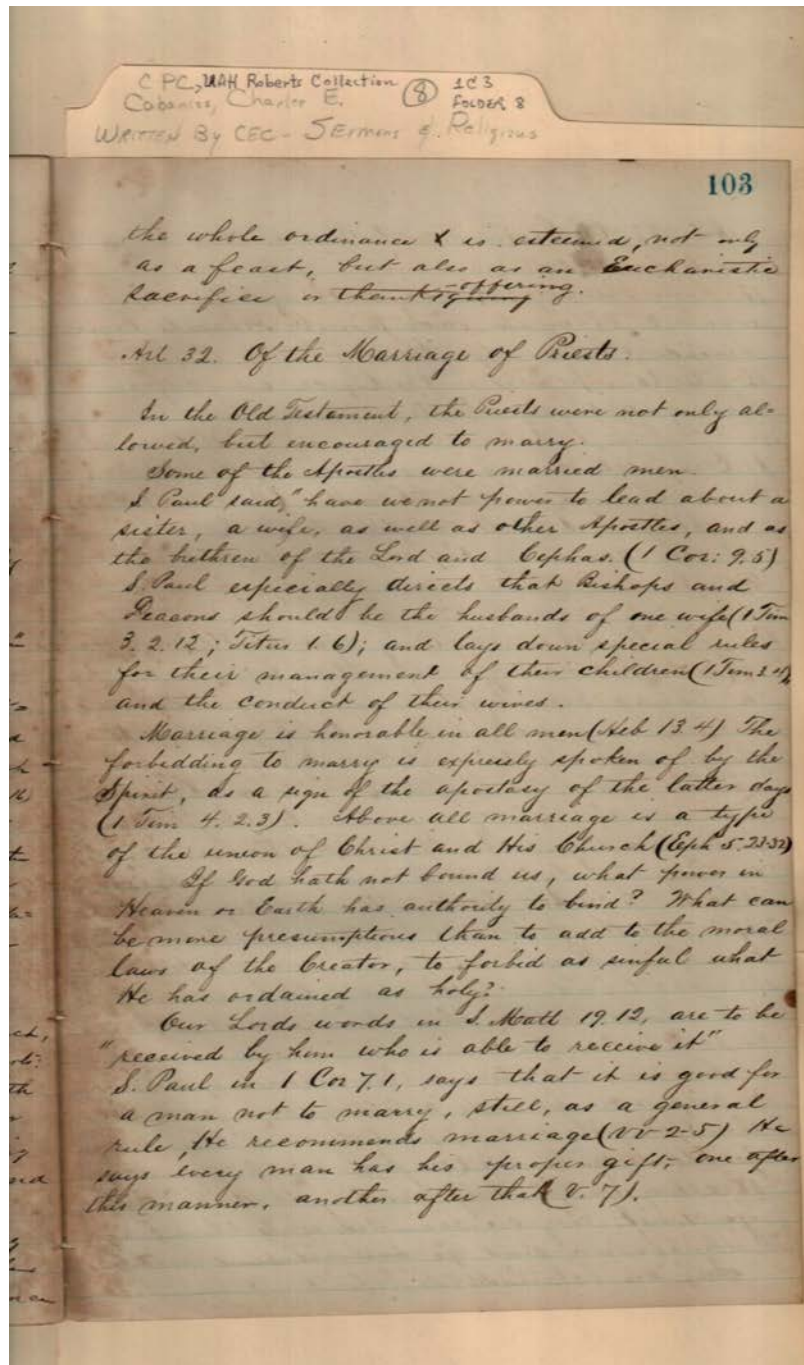 C PC, UAH Roberts Collection 8 1C3
Cabaniss, Charles E. FOLDER 8
WRITTEN By CEC - SERmons & Religious
103
the whole ordinance X is esteemed, not only
as a feast, but also as an Eucharistic
sacrifice or thanksgiving -offering.
Art 32. Of the Marriage of Priests.
In the Old Testament, the Priests were not only al=
lowed, but encouraged to marry.
Some of the Apostles were married men.
S. Paul said, "have we not power to lead about a
sister, a wife, as well as other Apostles, and as
the brethren of the Lord and Cephas. (1 Cor: 9.5)
S. Paul especially directs that Bishops and
Deacons should be the husbands of one wife (1 Tim
3. 2. 12; Titus 1. 6); and lays down special rules
for their management of their children (1 Tim
and the conduct of their wives.
Marriage is honorable in all men (Heb 13. 4) The
forbidding to marry is expressly spoken of by the
Spirit, as a sign of the apostasy of the latter days
(1 Tim 4. 2. 3). Above all marriage is a type
of the union of Christ and His Church (Eph 5-23-32)
If God hath not bound us, what power in
Heaven or Earth has authority to bind? What can
be more presumptious than to add to the moral
laws of the Creator, to forbid as sinful what
He has ordained as holy?
Our Lords words in S. Matt 19. 12, are to be
"received by him who is able to receive it"
S. Paul in 1 Cor 7. 1, says that it is good for
a man not to marry, still, as a general
rule, He recommends marriage (vv 2-5) He
says every man has his proper gift, one after
this manner, another after that (v. 7).